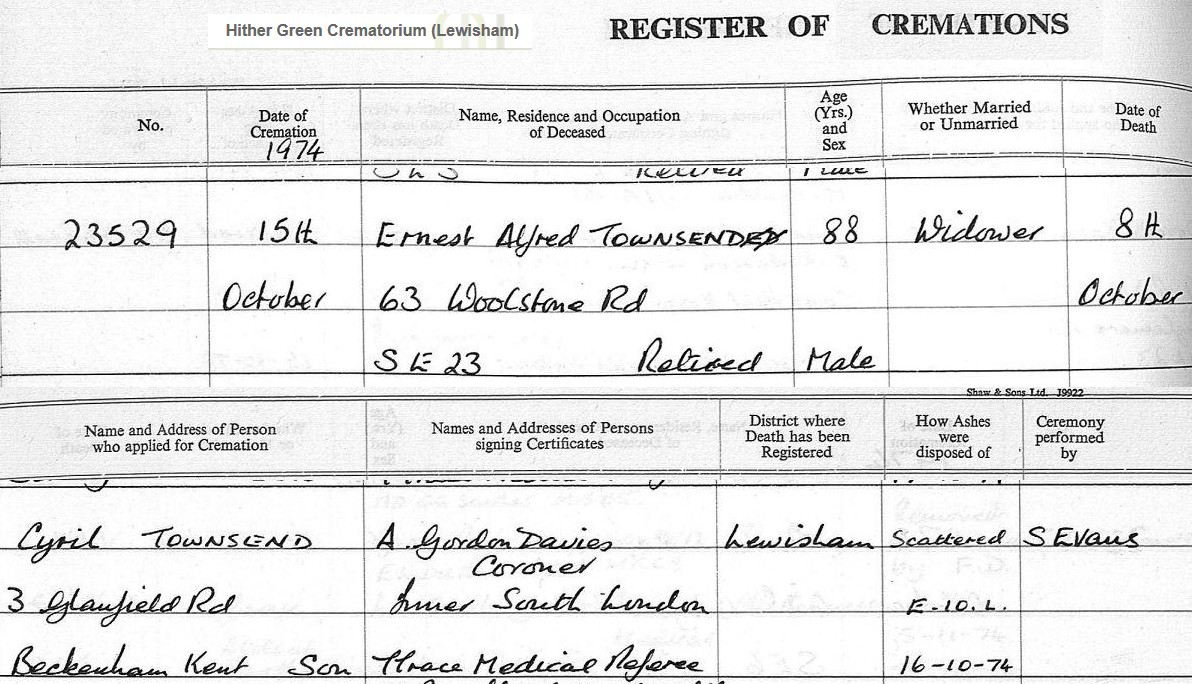 Hither Green Crematorium (Lewisham)
REGISTER OF CREMATIONS
No.
Date of
Cremation
1974
Name, Residence and Occupation
of Deceased
Age
(Yrs.)
and
Sex
Whether Married
or Unmarried
Date of
Death
23529 15th Ernest Alfred TOWNSEND 88 Widower 8th
October 63 Woolstone Rd October
SE 23 Retired Male
Shaw & Sons Ltd. J9922
Name and Address of Person
who applied for Cremation
Names and Addresses of Persons
signing Certificates
District where
Death has been
Registered
How Ashes
were
disposed of
Ceremony
performed
by
Cyril TOWNSEND A. Gordon Davies Lewisham Scattered S Evans
Coroner
3 Glanfield Rd Inner South London E-10.L.
Beckenham Kent Son Medical Referee 16-10-74